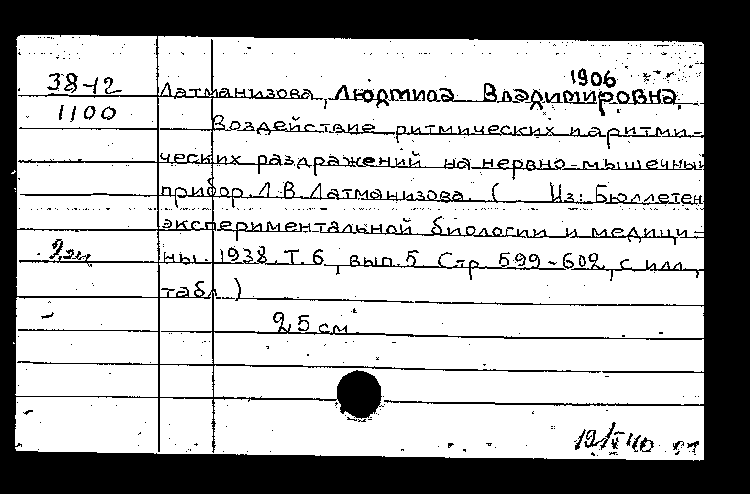 1906
38-12 Латманизова, Людмила Владимировна.
1100 Воздействие ритмических и аритми-
ческих раздражений на нервно-мышечный
прибор. Л.В. Латманизова. ( Из: Бюллетен
экспериментальной биологии и медици-
2 эк ны. 1938. Т. 6, вып. 5 Стр. 599-602, с илл.,
табл.)
25 см.
19/V 40